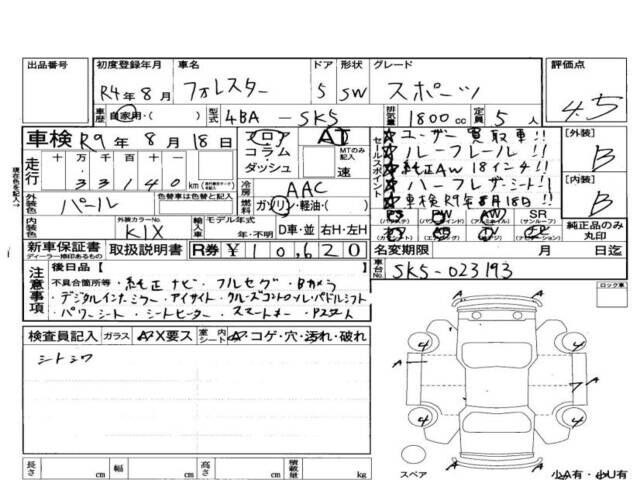 出品番号 初度登録年月 車名 ドア 形状 グレード 評価点
R4年8月 フォレスター 5 SW スポーツ 4.5
車歴 自家用・( ) 型式 4BA - SK5 排気量 1800cc 定員 5人
車検 R9年8月18日 フロア コラム ダッシュ AT MTのみ記入 速
セールスポイント
☆ユーザー買取車!!
☆ルーフレール!!
☆純正AW18インチ!!
☆ハーフレザーシート!!
☆車検R9年8月18日!!
[外装] B
[内装] B
現在色を記入→
走行 十 万 千 百 十
33140 km
冷房 AAC
外装色 パール 色替車は色替と記入 燃料 ガソリン・軽油・( )
PS PW AW SR
(パワステ) (パワーウインド) (アルミホイル) (サンルーフ)
純正品のみ丸印
内装色 外装カラーNo. K1X 輸入車 モデル年式 年・不明 D車・並 右H・左H
新車保証書 ディーラー捺印あるもの 取扱説明書 R券 ¥10,620 名変期限 月 日迄
車台No. SK5-023193
注意事項 後日品 [ ]
不具合箇所等・純正ナビ・フルセグ・Bカメラ
・デジタルインナーミラー・アイサイト・クルーズコントロール・パドルシフト
・パワーシート・シートヒーター・スマートキー・Pスタート
ロック車
検査員記入 ガラス A・X要ス 室内シート A・コゲ・穴・汚れ・破れ
シトシワ
A A
4 4
A 7
4 4
スペア
長さ cm 幅 cm 高さ cm 積載量 kg
小A有・小U有